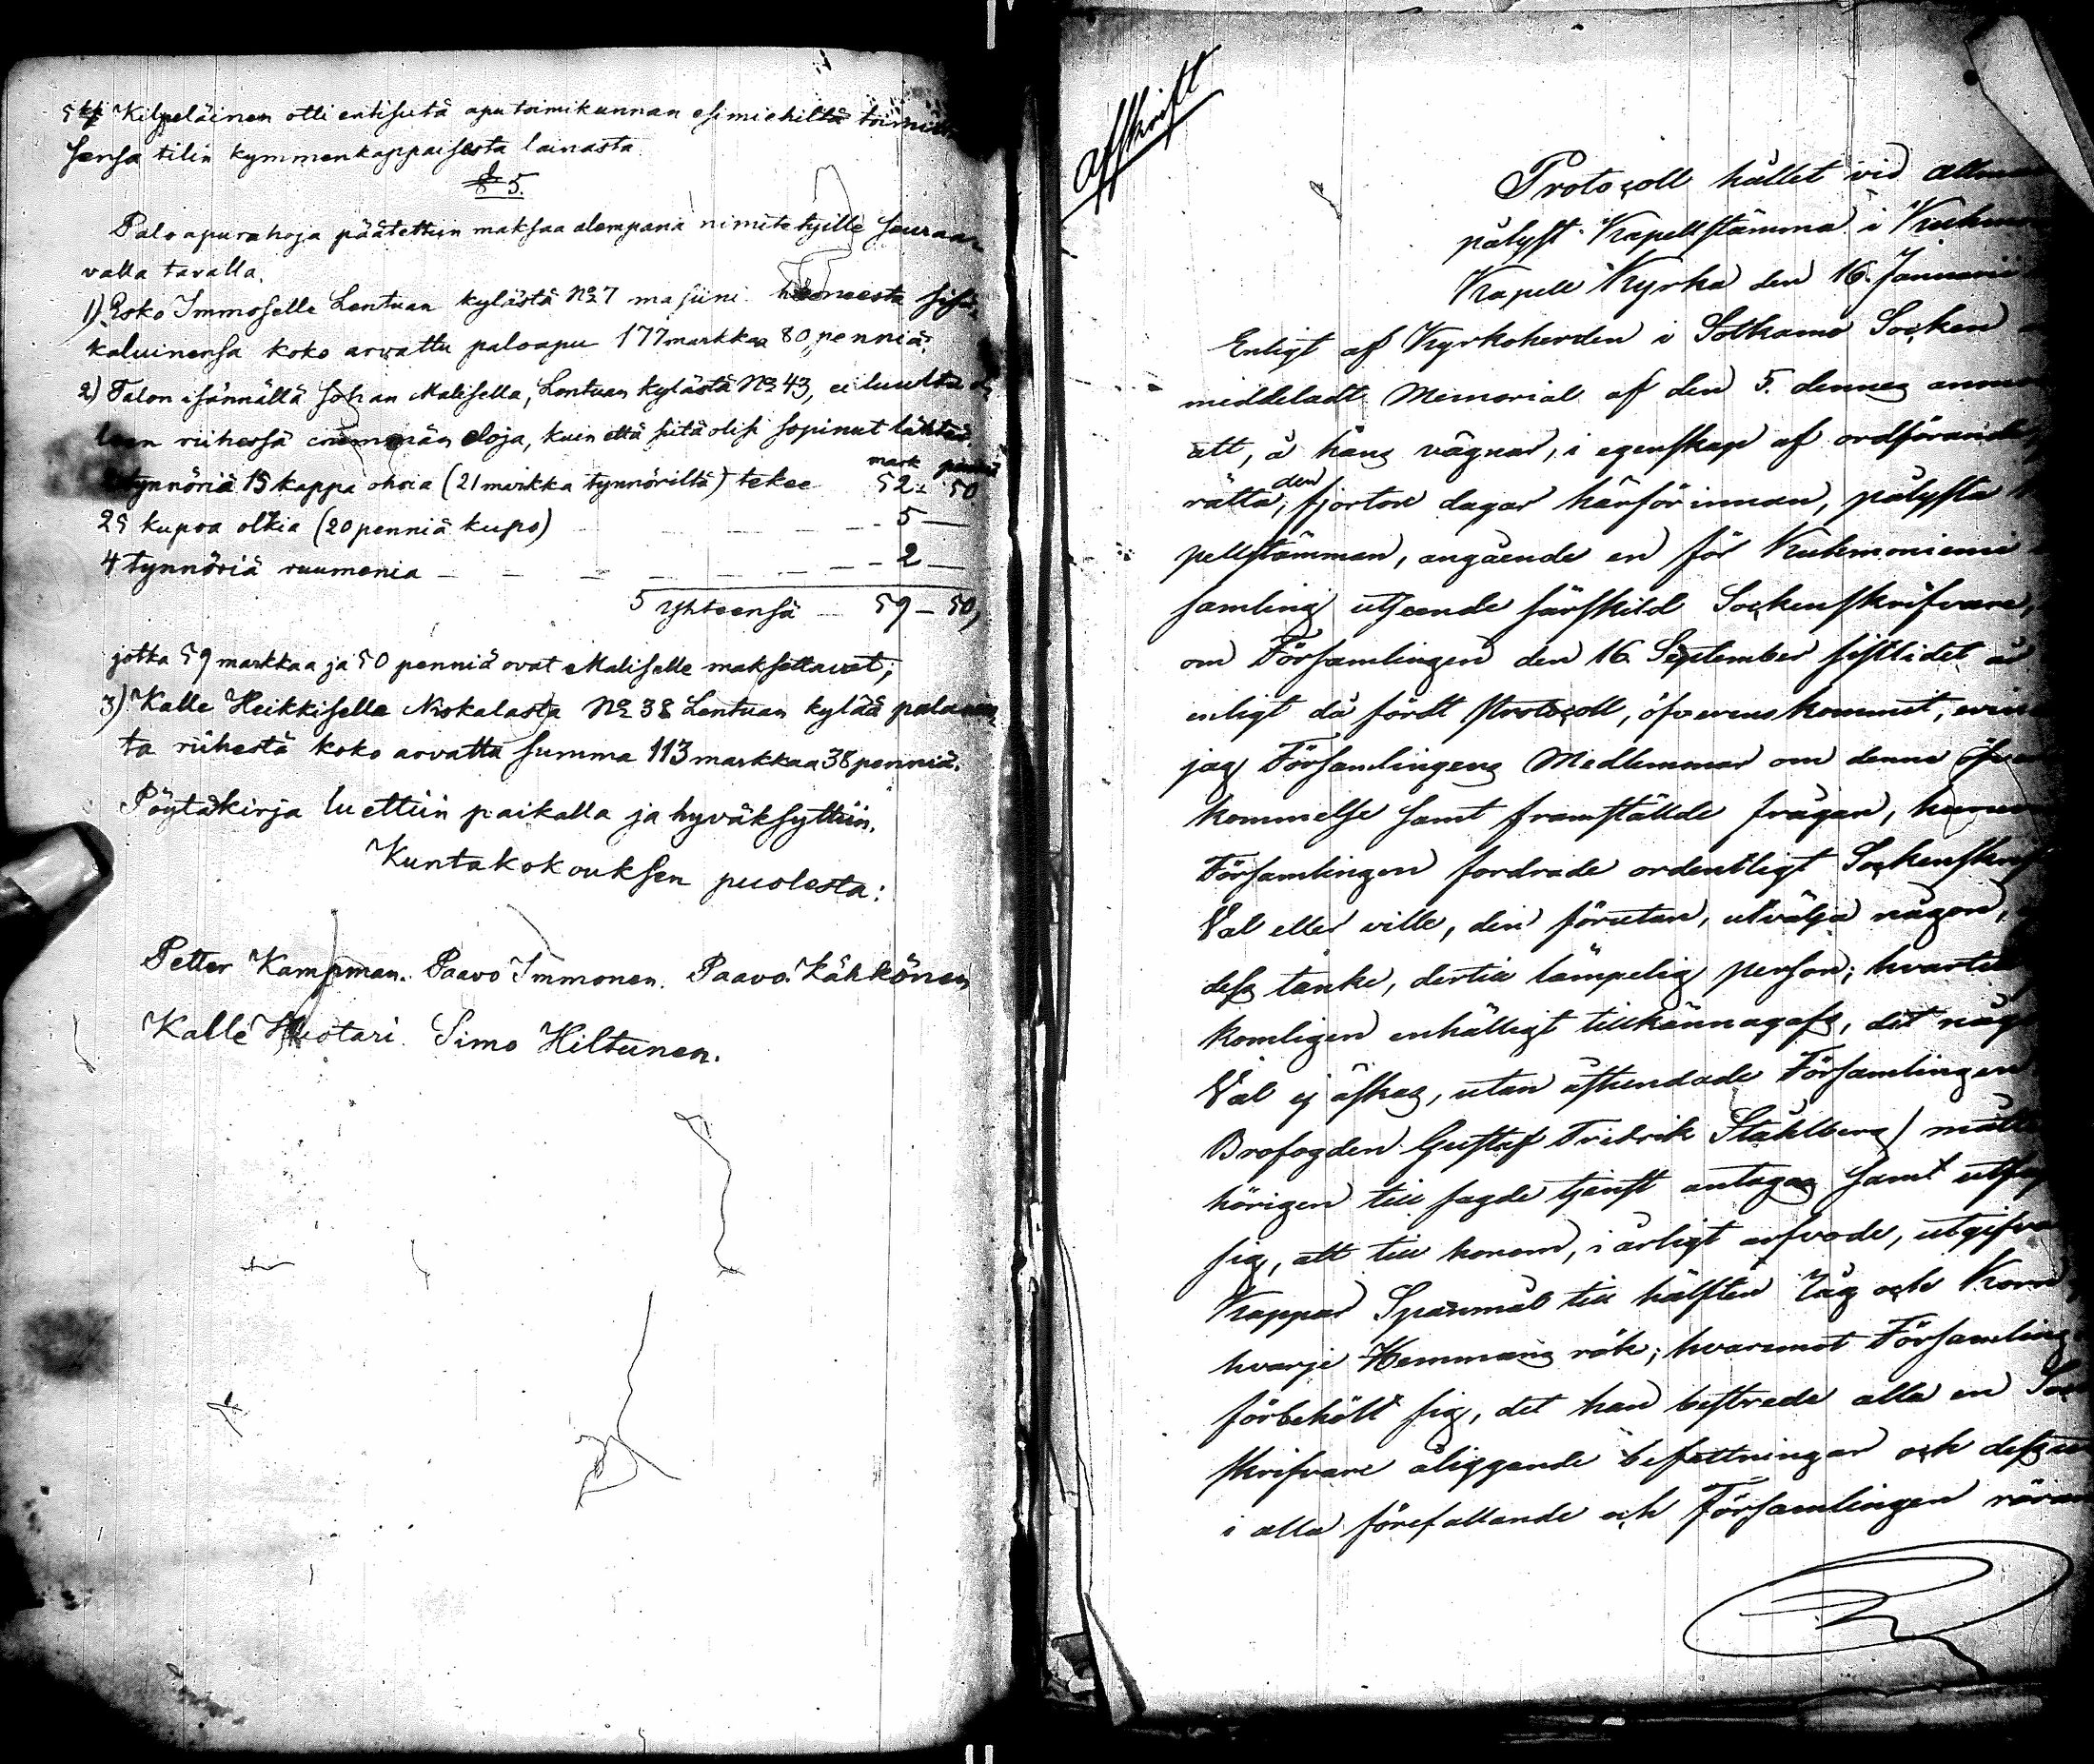 Kilpeläinen otti entisiltä aputoimikunnan esimiehiltä
sensa tilin kymmenkappaisesta lainasta
§ 5.
Paloapurahoja päätettiin maksaa alempana nimitetyille seuraa-
valla tavalla.
1) Esko Immoselle Lentuan kylästä No 7 masiini huoneesta
kaluinensa koko arvattu paloapu 177 markkaa 80 penniä.
2) Talon isännällä Johan Malisella, Lentuan kylästä No 43, ei
riihessä enemmän eloja, kuin että siitä olisi sopinut lähteä
mark penniä
tynnöriä 15 kappa ohria (21 markka tynnöriltä) tekee 52 - 50
25 kupoa olkia (20 penniä kupo) - - - 5 —
4 tynnöriä ruumenia - - - - - - - 2 —
Yhteensä - 59 - 50,
jotka 59 markkaa ja 50 penniä ovat Maliselle maksettavat;
3) Kalle Heikkiselle Niskalasta No 38 Lentuan kylää
ta riihestä koko arvattu summa 113 markkaa 38 penniä.
Pöytäkirja luettiin paikalla ja hyväksyttiin.
Kuntakokouksen puolesta:
Petter Kampman. Paavo Immonen. Paavo Kähkönen
Kalle Huotari. Simo Hiltunen.
Afskrift
Protocoll hållet vid
pålyst Kapellstämma i
Kapell Kyrka den 16. Januarii
Enligt af Kyrkoherden i Sotkamo Socken
meddeladt Memorial af den 5. dennes
att, å hans vägnar, i egenskap af ordförande
rätta, den fjorton dagar härförinnan, pålysta
pellstämman, angående en för Kuhmoniemi
samling utseende särskild Sockenskrifvare,
om Församlingen den 16. September sistlidet år
enligt då fördt Protocoll, öfverenskommit,
jag Församlingens Medlemmar om denne
kommelse samt framställde frågan,
Församlingen fordrade ordentligt
Val eller ville, den förutan, utvälja någon,
dess tanke, dertill lämpelig person;
komligen enhälligt tillkännagafs, det
Val ej äskas, utan åstundade Församlingen
Brofogden Gustaf Fridrik Ståhlberg
hörigen till sagde tjenst antagas samt
sig, att till honom, i årligt arfvode,
Kappar Spannmål till hälften Råg och Korn,
hvarje Hemmans rök; hvaremot
förbehöll sig, det han bestrede alla en
skrifvare åliggande befattningar och
i alla förefallande och Församlingen